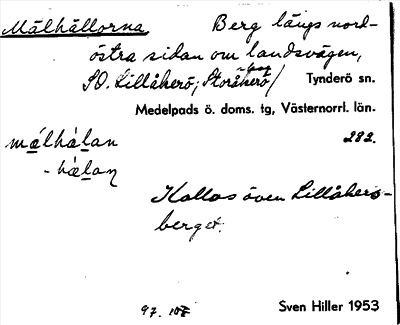 Mälhällorna Berg längs nord-
östra sidan om landsvägen,
SO. Lillåherö; Storåherö/ Tynderö sn.
Medelpads ö. doms. tg, Västernorrl. län.
282.
Kallas även Lillåherö-
berget.
97. Sven Hiller 1953